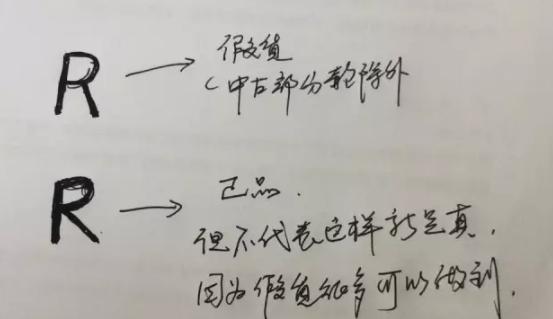 R → 假货
(中古部分鞋除外
R → 正品.
但不代表这样就是真,
因为假货很多可以做到.